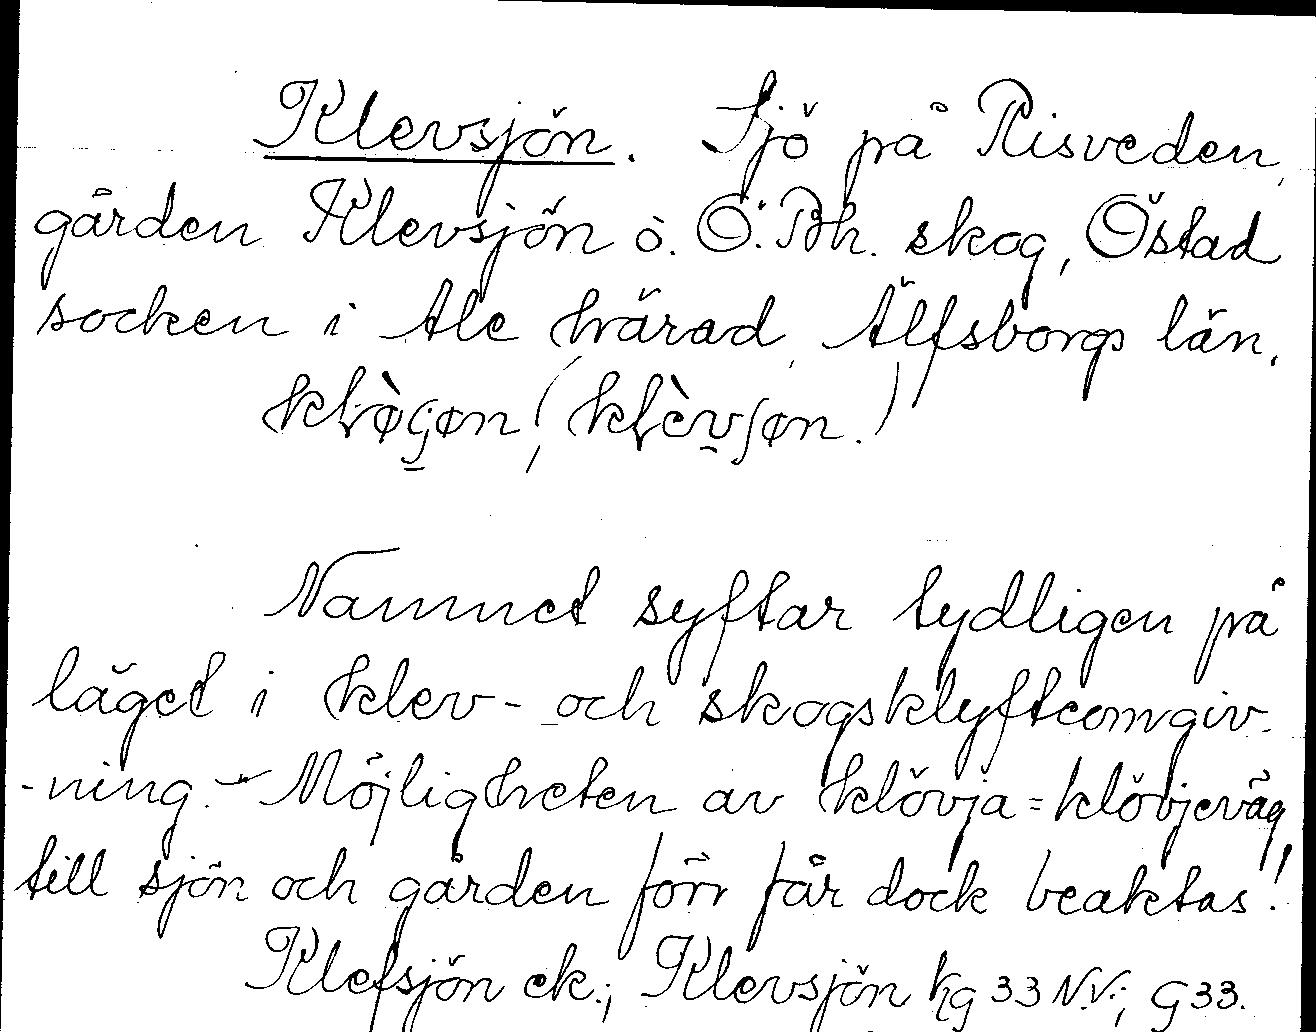 Klevsjön. Sjö på Risveden,
gården Klevsjön o. Ö. Bh. skog, Östad
socken i Ale härad, Älfsborgs län.
(klèvʃøn.)
Namnet syftar tydligen på
läget i klev- och skogsklyfteomgiv-
-ning. - Möjligheten av klövja = klövjeväg
till sjön och gården förr får dock beaktas!
Klefsjön ek.; Klevsjön kg 33 N.V.; G33.